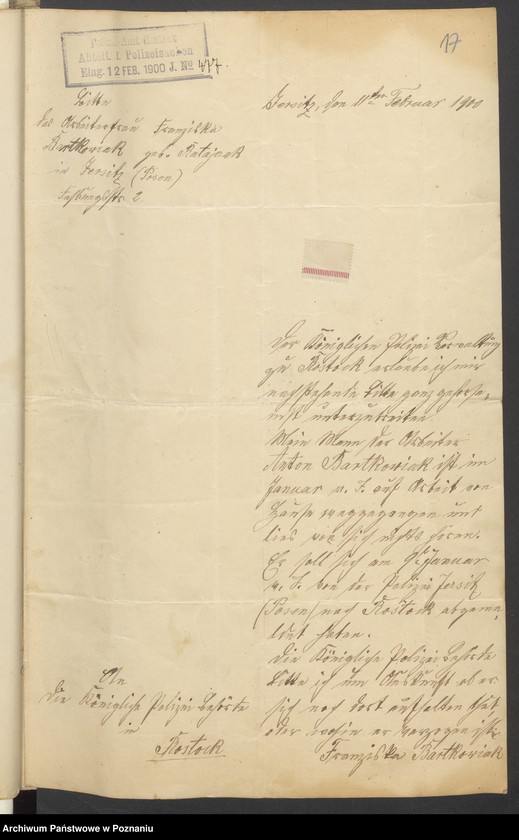 17
Polizei-Amt Rostock
Abteil. f. Polizeisachen
Eing. 12 FEB. 1900 J. No 477.
Jersitz, den 11ten Februar 1900
Bitte
der Arbeiterfrau Franziska
Bartkowiak geb. Ratajczak
in Jersitz (Posen)
2
Der Königlichen Polizei Verwaltung
zu Rostock erlaube ich mir
nachstehende Bitte ganz gehorsa-
mst unterzubreiten.
Mein Mann der Arbeiter
Anton Bartkowiak ist im
Januar v. J. auf Arbeit von
Hause weggegangen und
lies von sich nichts hören.
Er soll sich am 9. Januar
v. J. von der Polizei Jersitz
(Posen) nach Rostock abgeme-
ldet haben.
Die Königliche Polizei Behörde
bitte ich um Auskunft ob er
sich noch dort aufhalten thut
oder wohin er verzogen ist.
Franziska Bartkowiak
An
die Königliche Polizei Behörde
in
Rostock
Archiwum Państwowe w Poznaniu